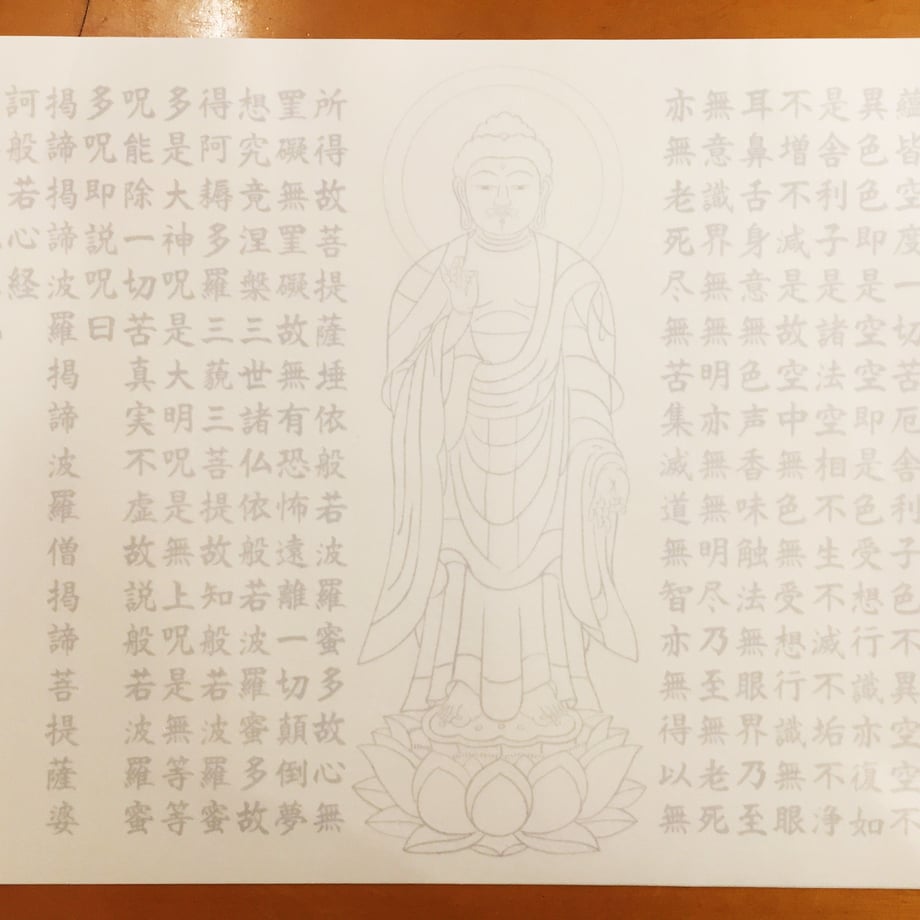 蘊皆空度一切苦厄舎利子色不異空空不
異色色即是空空即是色受想行識亦復如
是舎利子是諸法空相不生不滅不垢不浄
不増不減是故空中無色無受想行識無眼
耳鼻舌身意無色声香味触法無眼界乃至
無意識界無無明亦無無明尽乃至無老死
亦無老死尽無苦集滅道無智亦無得以無
所得故菩提薩埵依般若波羅蜜多故心無
罣礙無罣礙故無有恐怖遠離一切顛倒夢
想究竟涅槃三世諸仏依般若波羅蜜多故
得阿耨多羅三藐三菩提故知般若波羅蜜
多是大神呪是大明呪是無上呪是無等等
呪能除一切苦真実不虚故説般若波羅蜜
多呪即説呪曰
掲諦掲諦波羅掲諦波羅僧掲諦菩提薩婆
訶般若心経